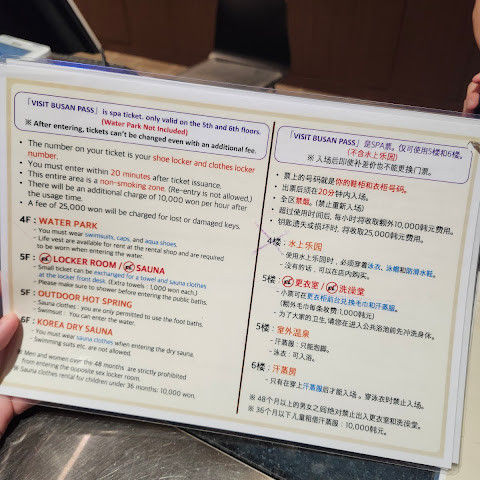 「VISIT BUSAN PASS」 is spa ticket. only valid on the 5th and 6th floors.
(Water Park Not Included)
※ After entering, tickets can't be changed even with an additional fee.
• The number on your ticket is your shoe locker and clothes locker
number.
• You must enter within 20 minutes after ticket issuance.
• This entire area is a non-smoking zone. (Re-entry is not allowed.)
• There will be an additional charge of 10,000 won per hour after
the usage time.
• A fee of 25,000 won will be charged for lost or damaged keys.
4F : WATER PARK
- You must wear swimsuits, caps, and aqua shoes.
- Life vest are available for rent at the rental shop and are required
to be worn when entering the water.
5F : LOCKER ROOM / SAUNA
- Small ticket can be exchanged for a towel and sauna clothes
at the locker front desk. (Extra towels : 1,000 won each.)
- Please make sure to shower before entering the public baths.
5F : OUTDOOR HOT SPRING
- Sauna clothes : you are only permitted to use the foot baths.
- Swimsuit : You can enter the water.
6F : KOREA DRY SAUNA
- You must wear sauna clothes when entering the dry sauna.
- Swimming suits etc. are not allowed.
※ Men and women over the 48 months are strictly prohibited
from entering the opposite sex locker room.
※ Sauna clothes rental for children under 36 months: 10,000 won.
「VISIT BUSAN PASS」是SPA票。仅可使用5楼和6楼。
(不含水上乐园)
※ 入场后即使补差价也不能更换门票。
• 票上的号码就是你的鞋柜和衣柜号码。
• 出票后须在20分钟内入场。
• 全区禁烟。(禁止重新入场)
• 超过使用时间后, 每小时将收取额外10,000韩元费用。
• 钥匙遗失或损坏时, 将收取25,000韩元费用。
4楼 : 水上乐园
- 使用水上乐园时, 必须穿着泳衣, 泳帽和防滑水鞋。
- 没有的话, 可以在店内购买。
5楼 : 更衣室 / 洗澡堂
- 小票可在更衣柜前台兑换毛巾和汗蒸服。
(额外毛巾每条收费1,000韩元)
- 为了大家的卫生, 请您在进入公共浴池前先冲洗身体。
5楼 : 室外温泉
- 汗蒸服 : 只能泡脚。
- 泳衣 : 可入浴。
6楼 : 汗蒸房
- 只有在穿上汗蒸服后才能入场 。穿泳衣时禁止入场。
※ 48个月以上的男女之间绝对禁止出入更衣室和洗澡堂。
※ 36个月以下儿童租借汗蒸服 : 10,000韩元。